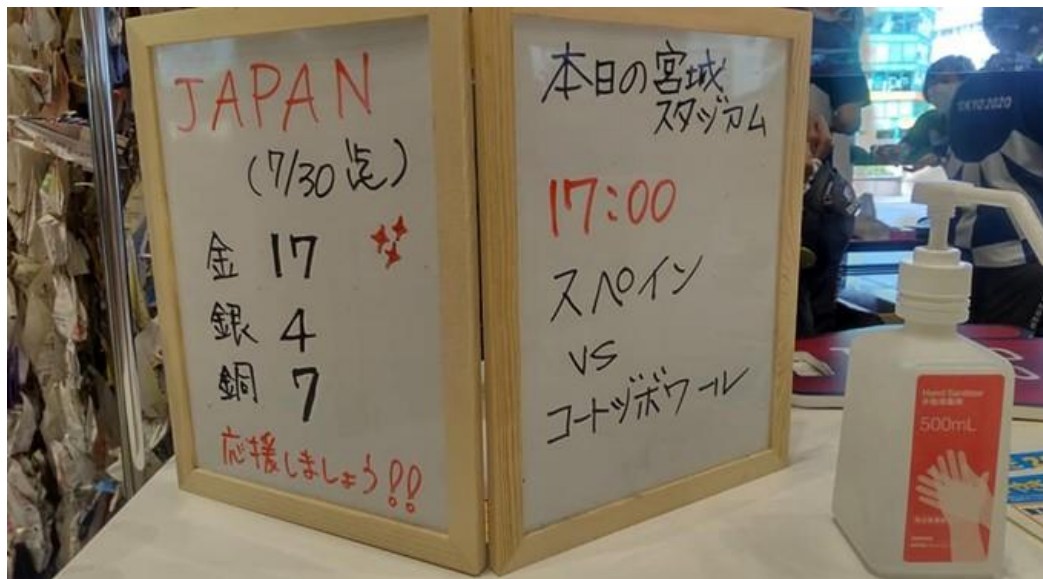 JAPAN
(7/30 迄)
金 17
銀 4
銅 7
応援しましょう!!
本日の宮城
スタジアム
17:00
スペイン
vs
コートジボワール
TOKYO2020
Hand Sanitizer
手指消毒剤
500mL